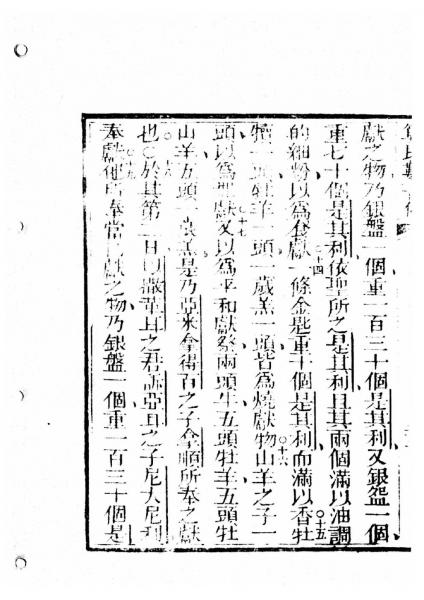 獻之物乃銀盤一個重一百三十個是其利又銀盌一個
重七十個是其利依聖所之是其利且其兩個滿以油調
的細麵以爲食獻○十四一條金匙重十個是其利而滿以香○十五牡
犢一頭牡羊一頭一歲羔一頭皆爲燒獻物○十六山羊之子一
頭以爲罪獻○十七又以爲平和獻祭兩頭牛五頭牡羊五頭牡
山羊五頭一歲羔是乃亞米拿得百之子拿順所奉之獻
也○十八於其第二日以撒革耳之君訴亞耳之子尼大尼利
奉獻○十九他所奉當己獻之物乃銀盤一個重一百三十個是